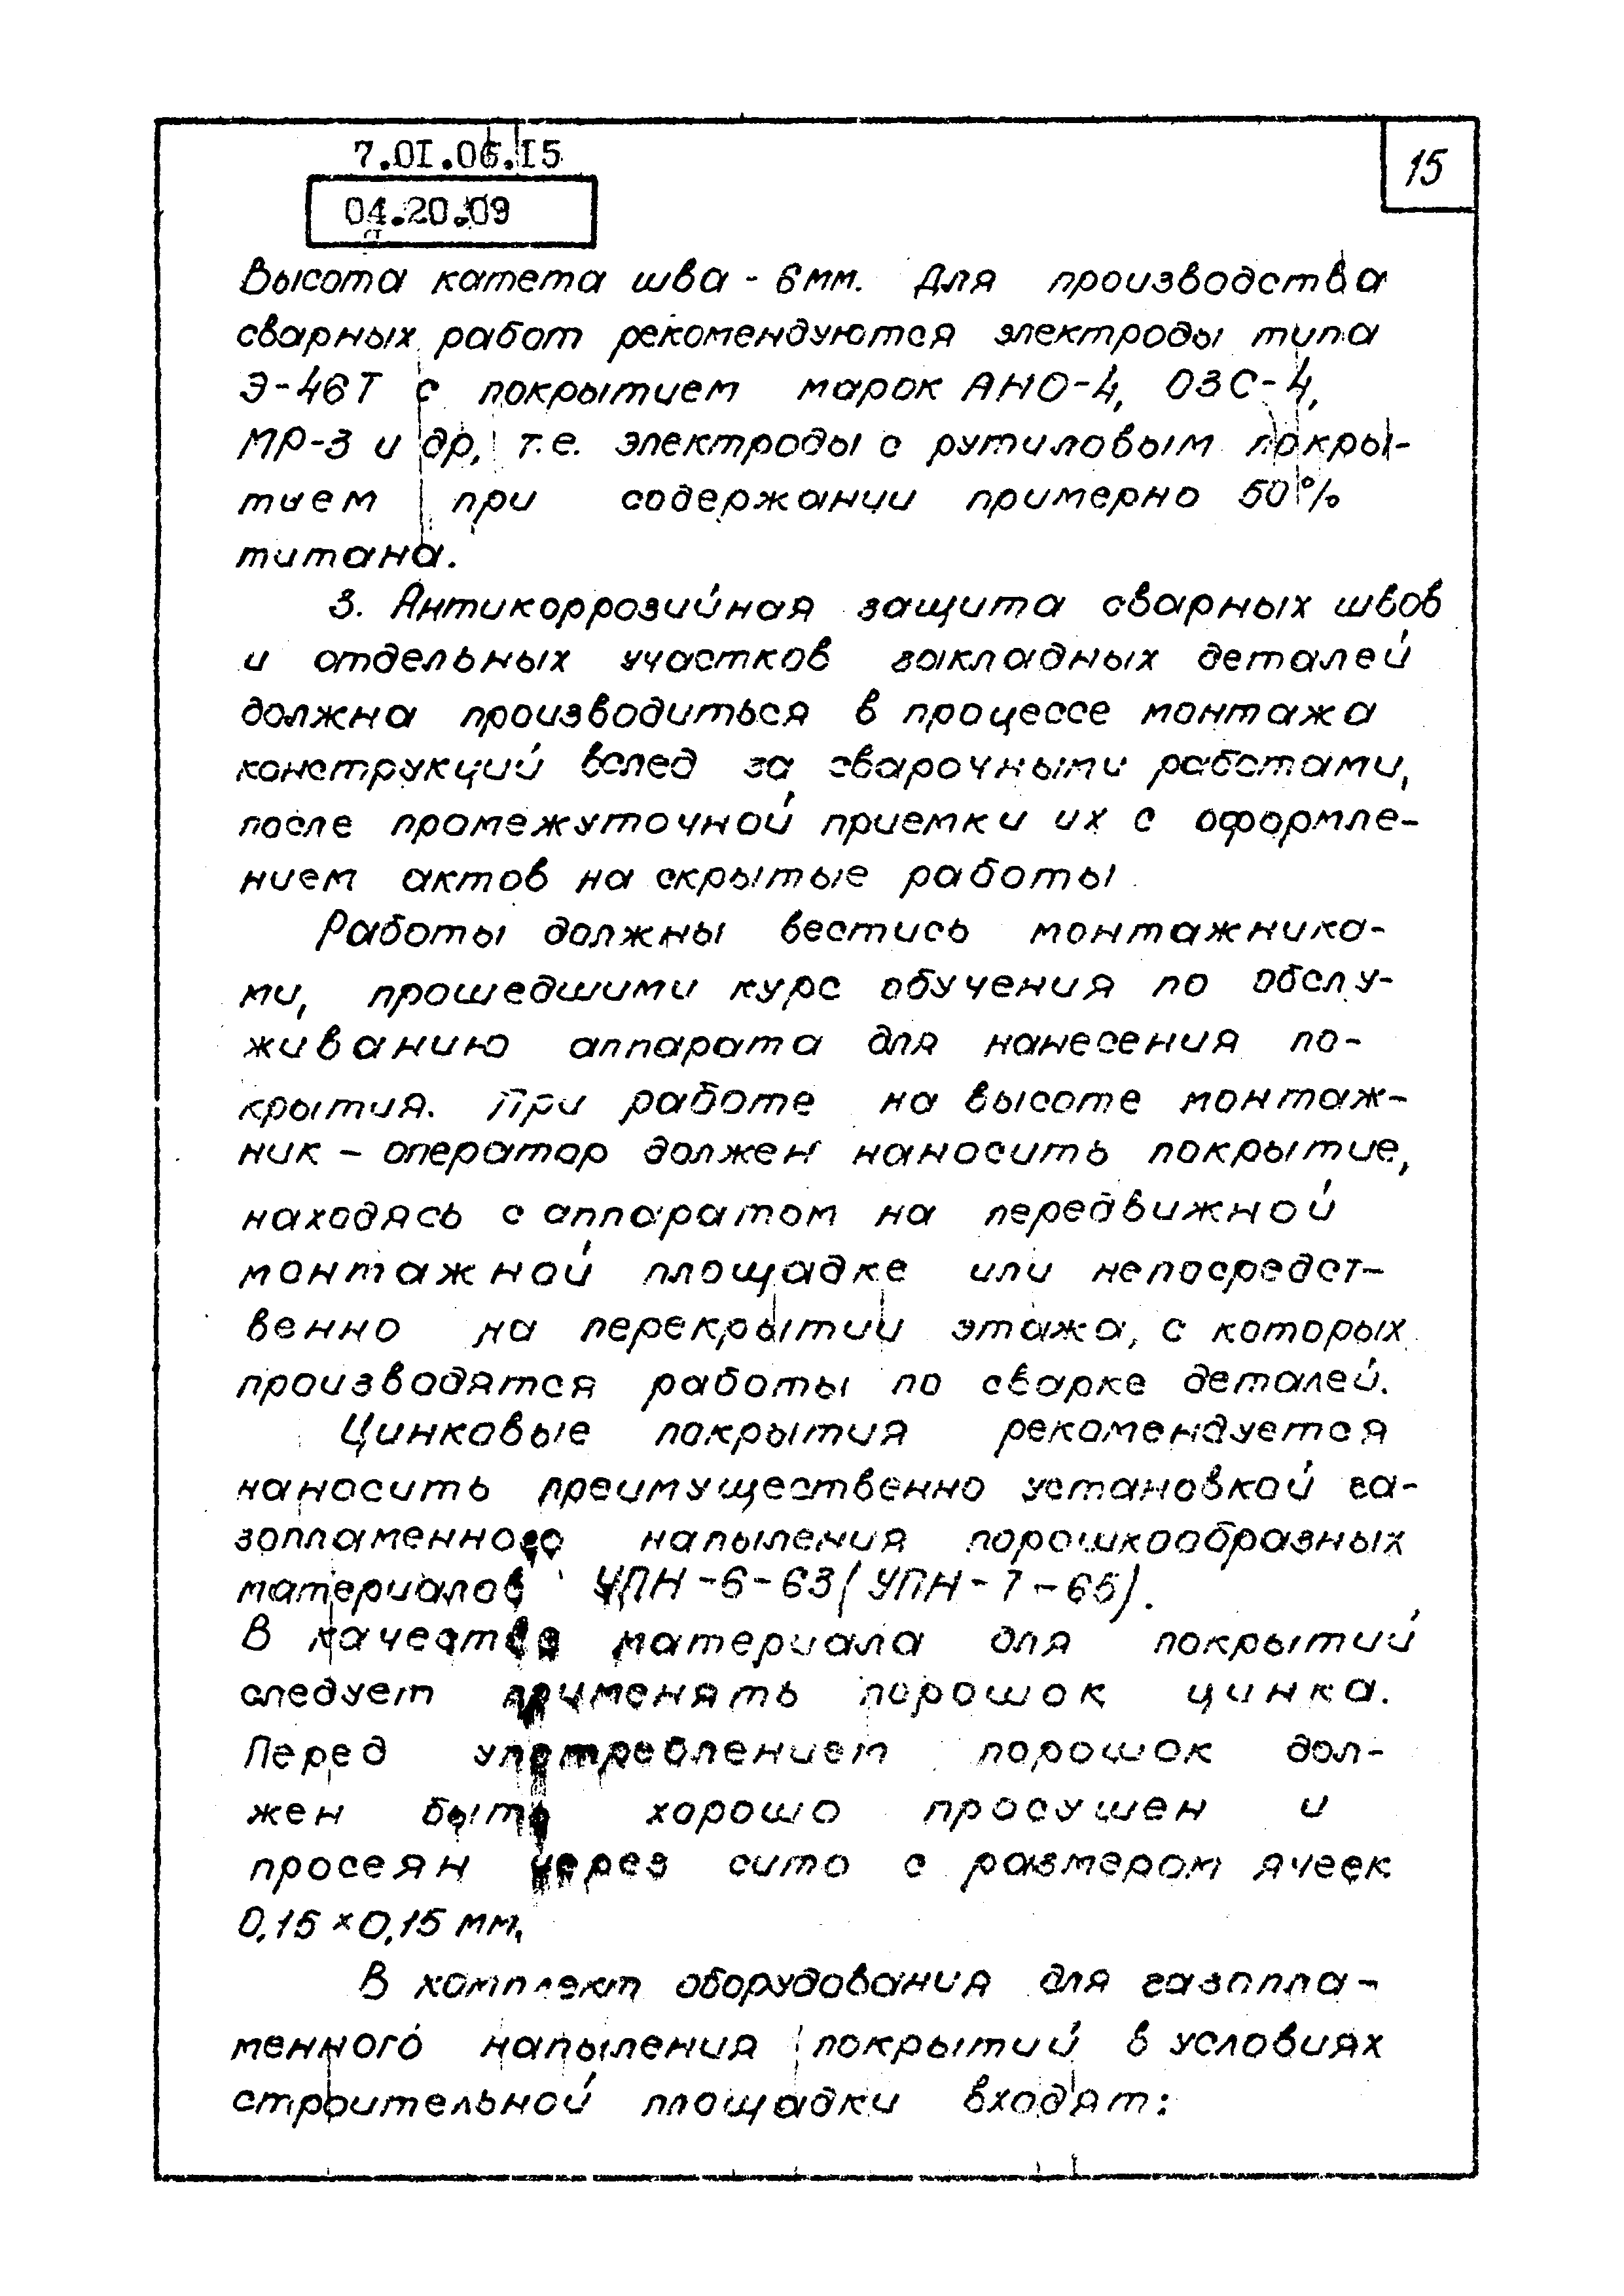 7.0I.06.I5
04.20.09
15
Высота катета шва - 6мм. Для производства
сварных работ рекомендуются электроды типа
Э-46Т с покрытием марок АНО-4, ОЗС-4,
МР-3 и др, т.е. электроды с рутиловым покры-
тием при содержании примерно 50%
титана.
3. Антикоррозийная защита сварных швов
и отдельных участков закладных деталей
должна производиться в процессе монтажа
конструкций вслед за сварочными работами,
после промежуточной приемки их с оформле-
нием актов на скрытые работы.
Работы должны вестись монтажника-
ми, прошедшими курс обучения по обслу-
живанию аппарата для нанесения по-
крытия. При работе на высоте монтаж-
ник - оператор должен наносить покрытие,
находясь с аппаратом на передвижной
монтажной площадке или непосредст-
венно на перекрытии этажа, с которых
производятся работы по сварке деталей.
Цинковые покрытия рекомендуется
наносить преимущественно установкой га-
зопламенного напыления порошкообразных
материалов УПН-6-63 (УПН-7-65).
В качестве материала для покрытий
следует применять порошок цинка.
Перед употреблением порошок дол-
жен быть хорошо просушен и
просеян через сито с размером ячеек
0,15 х 0,15 мм.
В комплект оборудования для газопла-
менного напыления покрытий в условиях
строительной площадки входят: